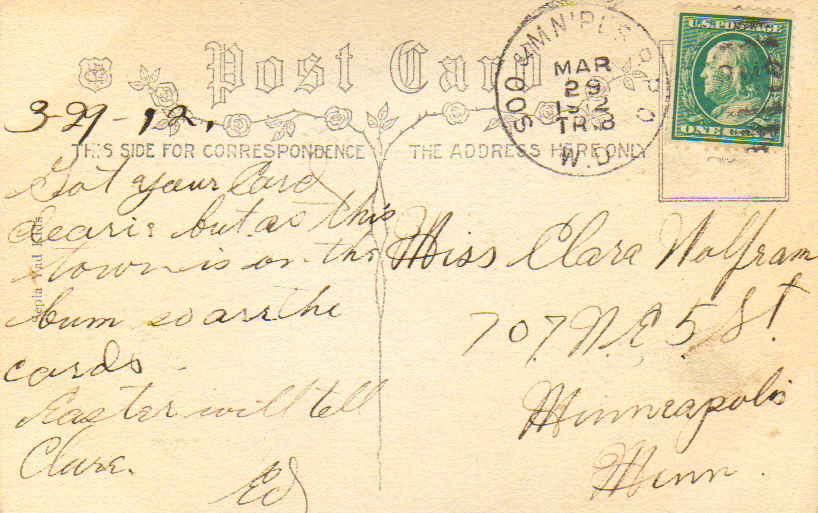 Post Card
3-29-12.
THIS SIDE FOR CORRESPONDENCE
THE ADDRESS HERE ONLY
Got your Card
Dearie but as this
town is on the
bum so are the
cards
Easter will tell
Clare.
Ed
MAR
29
1912
TR.3
W.D
R.P.O
SOO
U.S. POSTAGE
ONE
Miss Clara Wolfram
707 N.E. 5 St
Minneapolis
Minn.
Sepia Kids